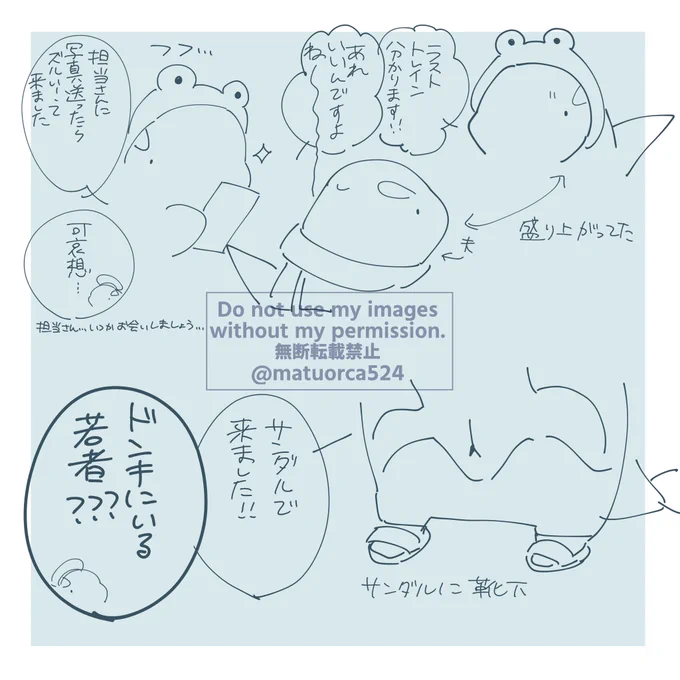 ラスト
トレイン
分かります!!
あれ
いいんですよ
ねー
盛り上がってた
夫
フフ…
担当さんに
写真送ったら
ズルいーって
来ました
可哀想…
担当さん…いつかお会いしましょう…
Do not use my images
without my permission.
無断転載禁止
@matuorca524
サンダルで
来ました!!
サンダルに靴下
ドンキにいる
若者???